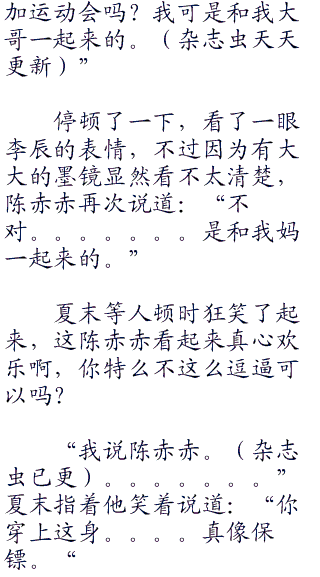 加运动会吗？我可是和我大
哥一起来的。（杂志虫天天
更新）”
停顿了一下，看了一眼
李辰的表情，不过因为有大
大的墨镜显然看不太清楚，
陈赤赤再次说道：“不
对。。。。。。。是和我妈
一起来的。”
夏末等人顿时狂笑了起
来，这陈赤赤看起来真心欢
乐啊，你特么不这么逗逼可
以吗？
“我说陈赤赤。（杂志
虫已更）。。。。。。。”
夏末指着他笑着说道：“你
穿上这身。。。。真像保
镖。“